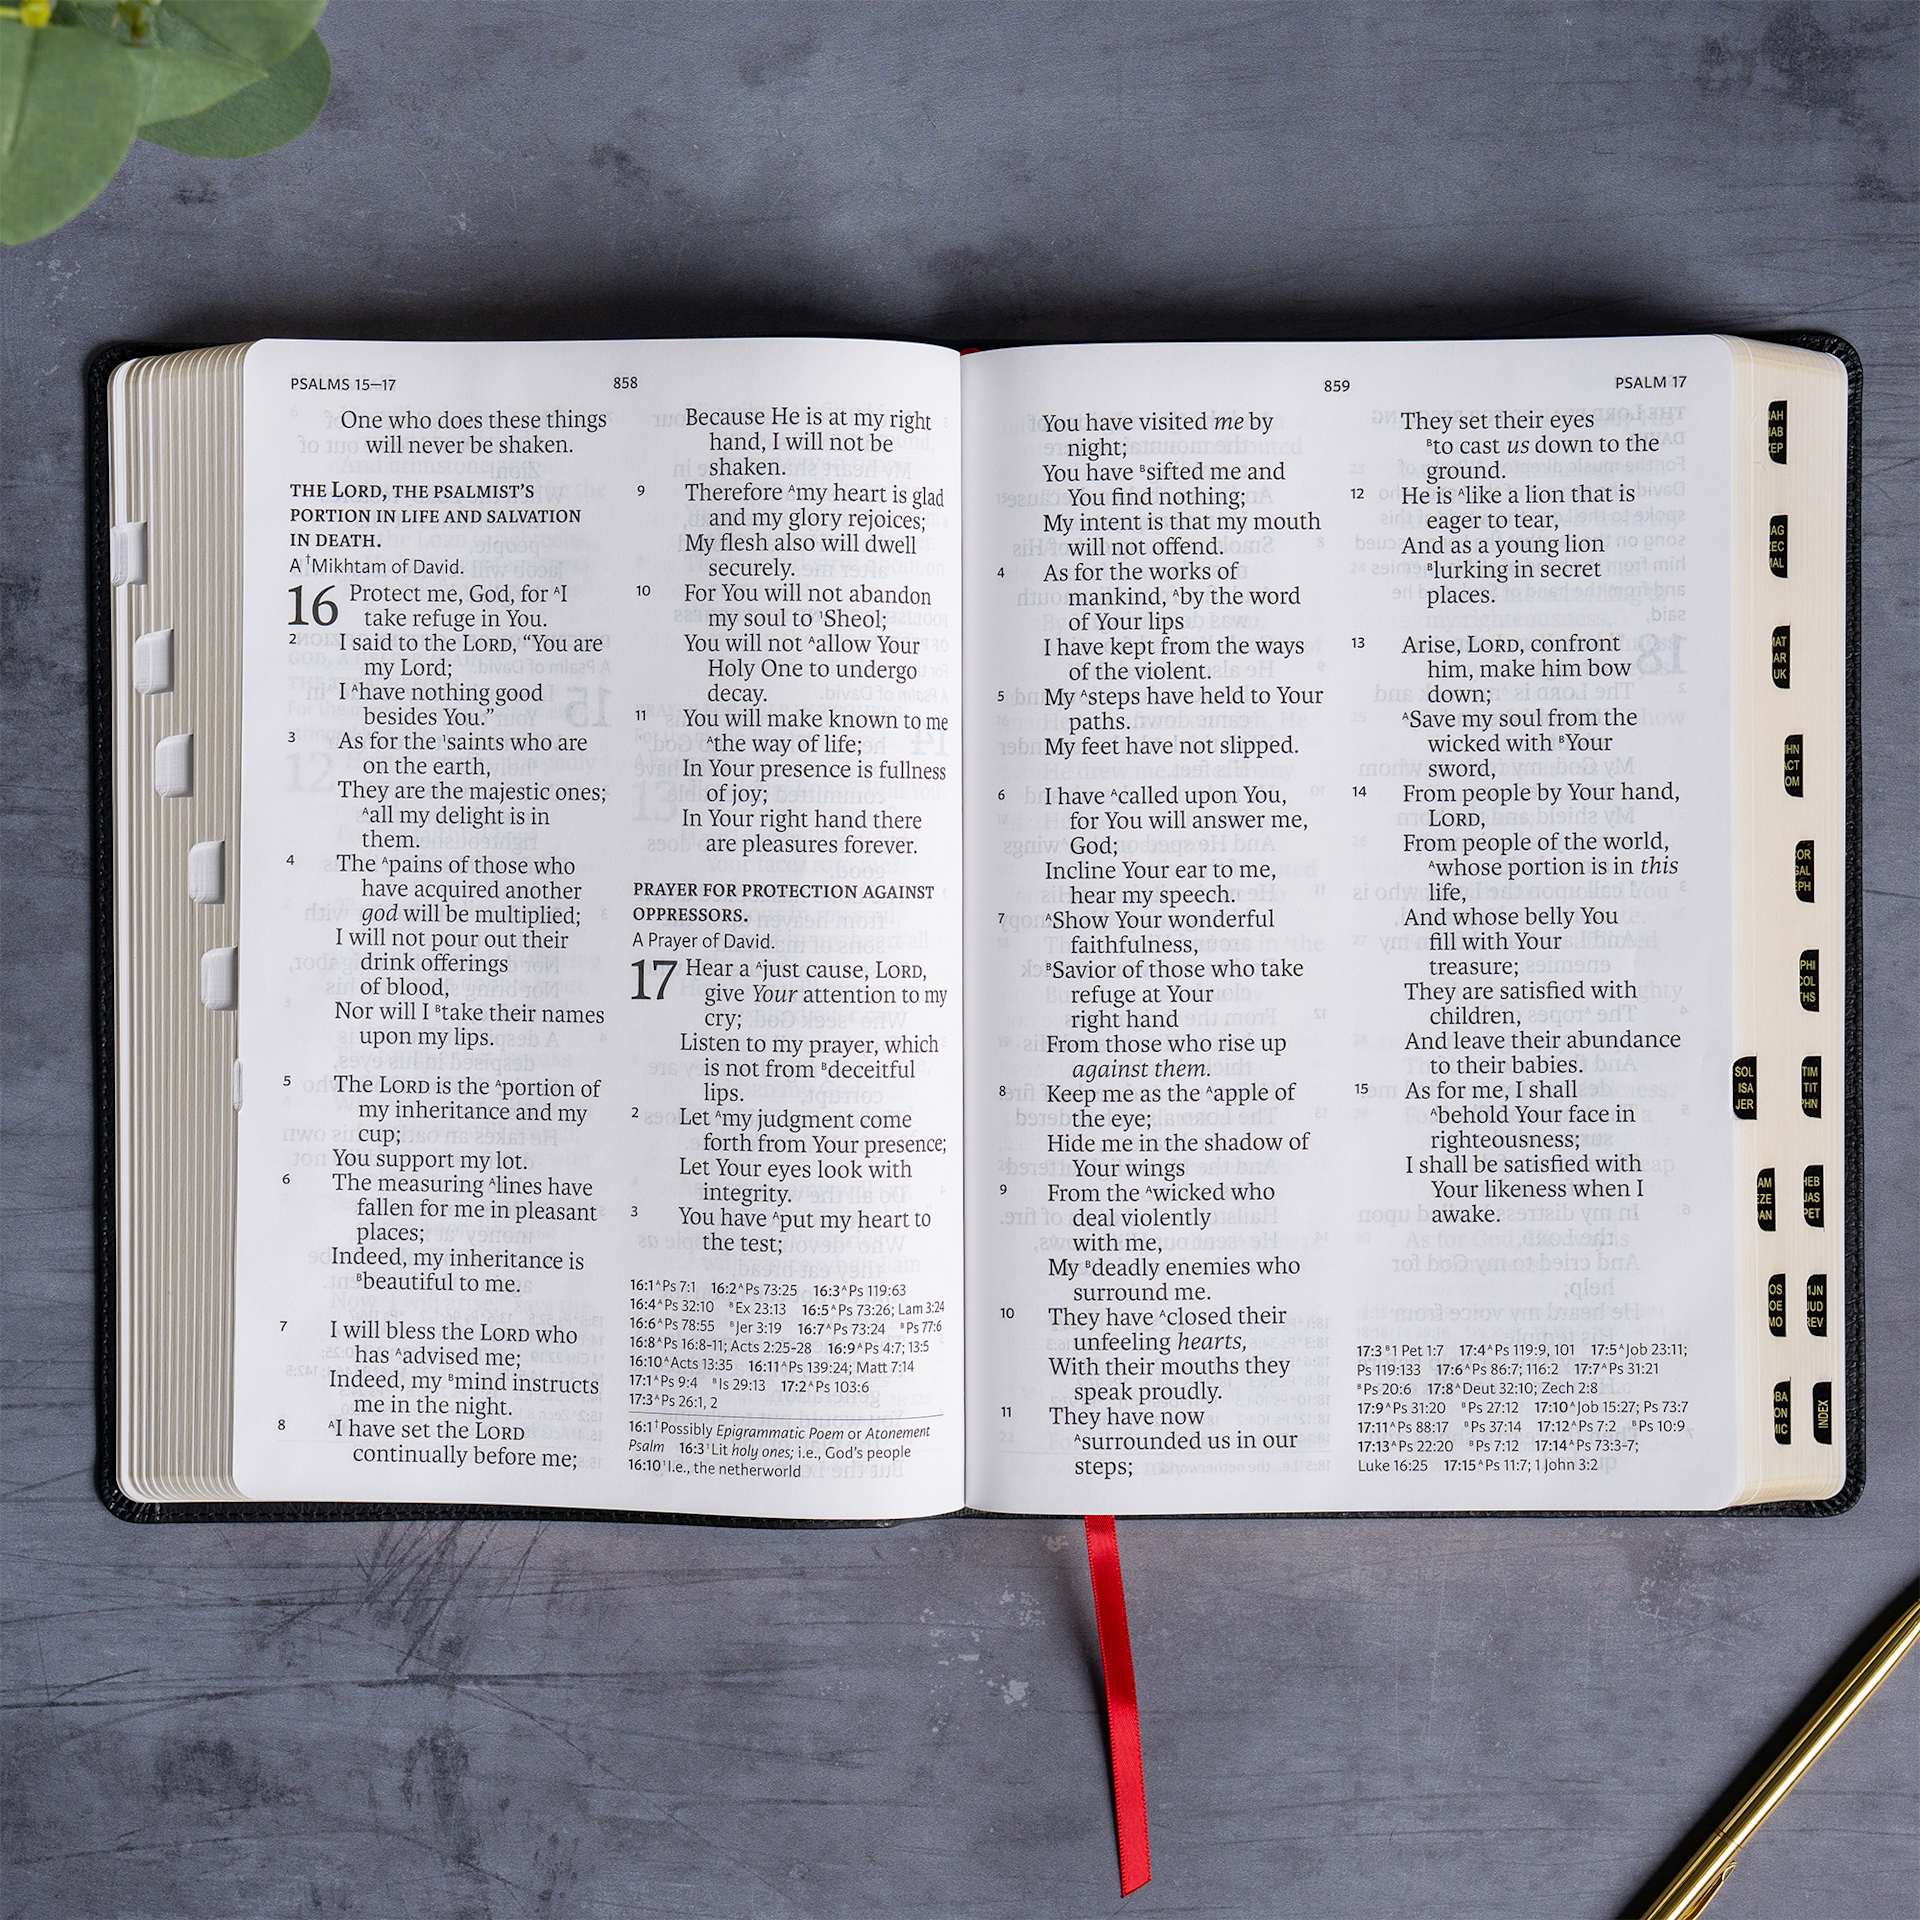 PSALMS 15–17
858
One who does these things
will never be shaken.
THE LORD, THE PSALMIST'S
PORTION IN LIFE AND SALVATION
IN DEATH.
A †Mikhtam of David.
16 Protect me, God, for ᴬI
take refuge in You.
2 I said to the LORD, “You are
my Lord;
I ᴬhave nothing good
besides You.”
3 As for the ¹saints who are
on the earth,
They are the majestic ones;
ᴬall my delight is in
them.
4 The ᴬpains of those who
have acquired another
god will be multiplied;
I will not pour out their
drink offerings
of blood,
Nor will I ᴮtake their names
upon my lips.
5 The LORD is the ᴬportion of
my inheritance and my
cup;
You support my lot.
6 The measuring ᴬlines have
fallen for me in pleasant
places;
Indeed, my inheritance is
ᴮbeautiful to me.
7 I will bless the LORD who
has ᴬadvised me;
Indeed, my ᴮmind instructs
me in the night.
8 ᴬI have set the LORD
continually before me;
Because He is at my right
hand, I will not be
shaken.
9 Therefore ᴬmy heart is glad
and my glory rejoices;
My flesh also will dwell
securely.
10 For You will not abandon
my soul to ¹Sheol;
You will not ᴬallow Your
Holy One to undergo
decay.
11 You will make known to me
ᴬthe way of life;
In Your presence is fullness
of joy;
In Your right hand there
are pleasures forever.
PRAYER FOR PROTECTION AGAINST
OPPRESSORS.
A Prayer of David.
17 Hear a ᴬjust cause, LORD,
give Your attention to my
cry;
Listen to my prayer, which
is not from ᴮdeceitful
lips.
2 Let ᴬmy judgment come
forth from Your presence;
Let Your eyes look with
integrity.
3 You have ᴬput my heart to
the test;
16:1 ᴬPs 7:1 16:2 ᴬPs 73:25 16:3 ᴬPs 119:63
16:4 ᴬPs 32:10 ᴮEx 23:13 16:5 ᴬPs 73:26; Lam 3:24
16:6 ᴬPs 78:55 ᴮJer 3:19 16:7 ᴬPs 73:24 ᴮPs 77:6
16:8 ᴬPs 16:8-11; Acts 2:25-28 16:9 ᴬPs 4:7; 13:5
16:10 ᴬActs 13:35 16:11 ᴬPs 139:24; Matt 7:14
17:1 ᴬPs 9:4 ᴮIs 29:13 17:2 ᴬPs 103:6
17:3 ᴬPs 26:1, 2
16:1 †Possibly Epigrammatic Poem or Atonement
Psalm 16:3 ¹Lit holy ones; i.e., God's people
16:10 ¹I.e., the netherworld
859
PSALM 17
You have visited me by
night;
You have ᴮsifted me and
You find nothing;
My intent is that my mouth
will not offend.
4 As for the works of
mankind, ᴬby the word
of Your lips
I have kept from the ways
of the violent.
5 My ᴬsteps have held to Your
paths.
My feet have not slipped.
6 I have ᴬcalled upon You,
for You will answer me,
God;
Incline Your ear to me,
hear my speech.
7 ᴬShow Your wonderful
faithfulness,
ᴮSavior of those who take
refuge at Your
right hand
From those who rise up
against them.
8 Keep me as the ᴬapple of
the eye;
Hide me in the shadow of
Your wings
9 From the ᴬwicked who
deal violently
with me,
My ᴮdeadly enemies who
surround me.
10 They have ᴬclosed their
unfeeling hearts,
With their mouths they
speak proudly.
11 They have now
ᴬsurrounded us in our
steps;
They set their eyes
ᴮto cast us down to the
ground.
12 He is ᴬlike a lion that is
eager to tear,
And as a young lion
ᴮlurking in secret
places.
13 Arise, LORD, confront
him, make him bow
down;
ᴬSave my soul from the
wicked with ᴮYour
sword,
14 From people by Your hand,
LORD,
From people of the world,
ᴬwhose portion is in this
life,
And whose belly You
fill with Your
treasure;
They are satisfied with
children,
And leave their abundance
to their babies.
15 As for me, I shall
ᴬbehold Your face in
righteousness;
I shall be satisfied with
Your likeness when I
awake.
17:3 ᴮ1 Pet 1:7 17:4 ᴬPs 119:9, 101 17:5 ᴬJob 23:11;
Ps 119:133 17:6 ᴬPs 86:7; 116:2 17:7 ᴬPs 31:21
ᴮPs 20:6 17:8 ᴬDeut 32:10; Zech 2:8
17:9 ᴬPs 31:20 ᴮPs 27:12 17:10 ᴬJob 15:27; Ps 73:7
17:11 ᴬPs 88:17 ᴮPs 37:14 17:12 ᴬPs 7:2 ᴮPs 10:9
17:13 ᴬPs 22:20 ᴮPs 7:12 17:14 ᴬPs 73:3-7;
Luke 16:25 17:15 ᴬPs 11:7; 1 John 3:2
SOL
ISA
JER
TIM
TIT
PHN
INDEX